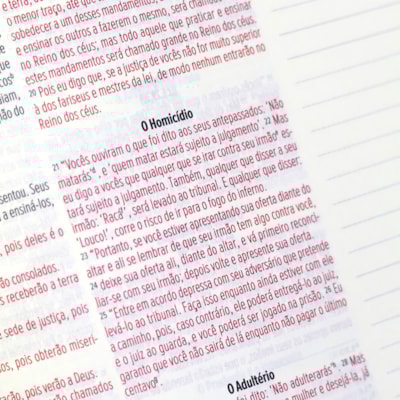 e terra, de
o menor traço, até que
sobedecer a um desses mandamentos,
e ensinar os outros a fazerem o mesmo, será chamado
no Reino dos céus; mas todo aquele que praticar e ensinar
estes mandamentos será chamado grande no Reino dos céus.
20 Pois eu digo que, se a justiça de vocês não for muito superior
à dos fariseus e mestres da lei, de modo nenhum entrarão no
Reino dos céus.
O Homicídio
21 "Vocês ouviram o que foi dito aos seus antepassados: 'Não
matarás', e 'quem matar estará sujeito a julgamento'. 22 Mas
eu digo a vocês que qualquer que se irar contra seu irmão es-
tará sujeito a julgamento. Também, qualquer que disser a seu
irmão: 'Racá', será levado ao tribunal. E qualquer que disser:
'Louco!', corre o risco de ir para o fogo do inferno.
23 "Portanto, se você estiver apresentando sua oferta diante do
altar e ali se lembrar de que seu irmão tem algo contra você,
24 deixe sua oferta ali, diante do altar, e vá primeiro reconci-
liar-se com seu irmão; depois volte e apresente sua oferta.
25 "Entre em acordo depressa com seu adversário que pretende
levá-lo ao tribunal. Faça isso enquanto ainda estiver com ele
a caminho, pois, caso contrário, ele poderá entregá-lo ao juiz,
e o juiz ao guarda, e você poderá ser jogado na prisão. 26 Eu
garanto que você não sairá de lá enquanto não pagar o último
centavo
O Adultério
foi dito: 'Não adulterarás'. 28 Mas
mulher e desejá-la, já
sentou. Seus
a ensiná-los,
pois deles é o
o consolados.
s receberão a terra
e sede de justiça, pois
pois obterão miseri-
ração, pois verão a Deus.